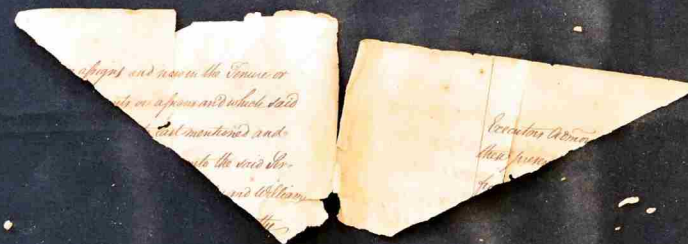 assigns and now in the Tenure or
or assigns and which said
last mentioned and
the said
and William
the
Executors Admors
these presen